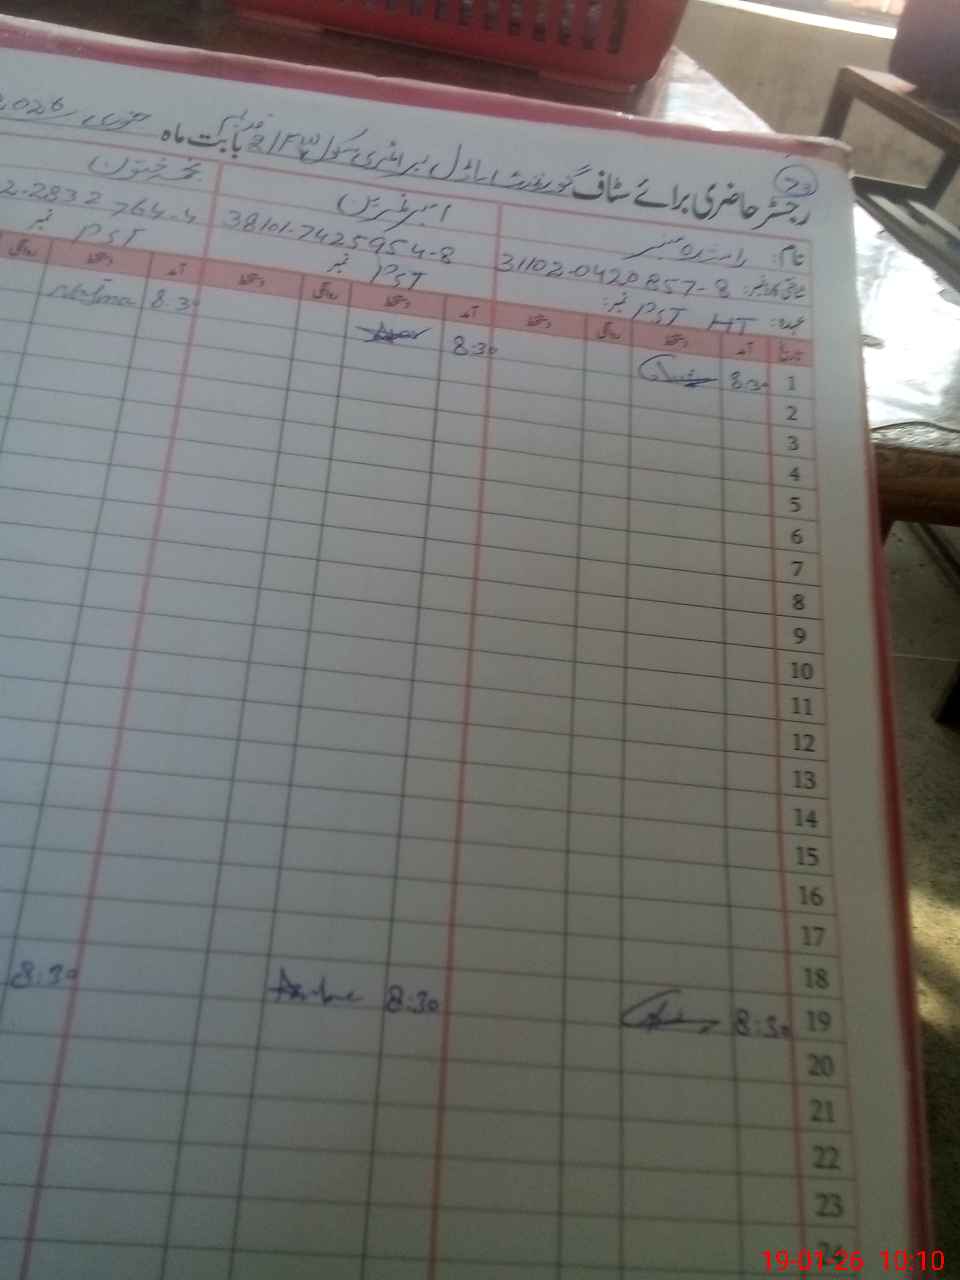 73
رجسٹر حاضری برائے سٹاف گورنمنٹ ماڈل پرائمری سکول 21/FW بابت ماہ جنوری 2026
نام:
شناختی کارڈ نمبر: 31102-0420857-8
38101-7425954-8
2-2832764-4
عہدہ: PST HT نمبر:
PST نمبر
PST نمبر
تاریخ آمد دستخط روانگی دستخط آمد دستخط روانگی دستخط آمد دستخط روانگی
1 8:30 8:30 8:30
2
3
4
5
6
7
8
9
10
11
12
13
14
15
16
17
18
19 8:30 8:30 8:30
20
21
22
23
24
19-01-26 10:10